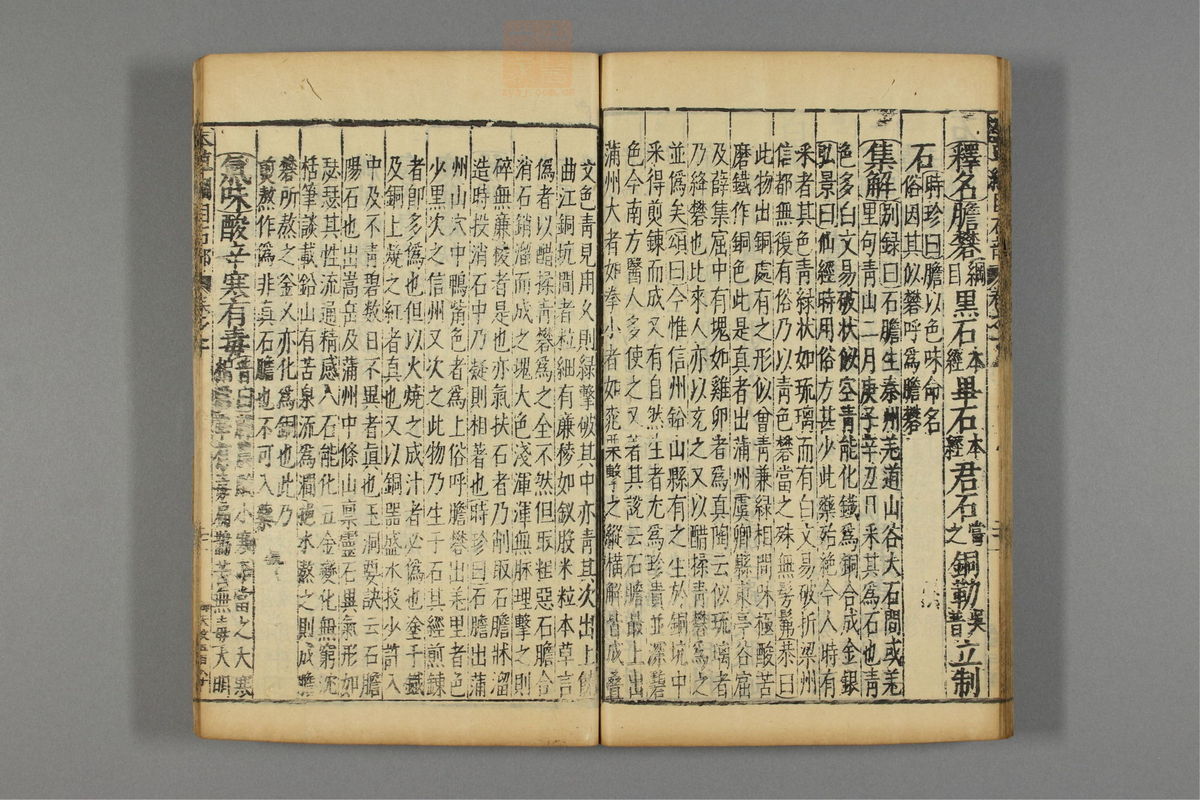 釋名膽礬綱目黑石本經畢石本經君石當之銅勒吳普立制
石時珍曰膽以色味命名
俗因其似礬呼為膽礬
集解別録曰石膽生秦州羌道山谷大石間或羌
里句青山二月庚子辛丑日采其為石也青
色多白文易破狀似空青能化鐵為銅合成金銀
弘景曰仙經時用俗方甚少此藥殆絶今人時有
采者其色青緑狀如琉璃而有白文易破折梁州
信都無復有俗乃以青色礬當之殊無髣髴恭曰
此物出銅處有之形似曾青兼緑相間味極酸苦
磨鐵作銅色此是真者出蒲州虞鄉縣東亭谷窟
及薛集窟中有塊如雞卵者為真陶云似琉璃者
乃絳礬也比來人亦以充之又以醋揉青礬為之
並偽矣頌曰今惟信州鉛山縣有之生於銅坑中
采得煎鍊而成又有自然生者尤為珍貴並深碧
色今南方醫人多使之又著其說云石膽最上出
蒲州大者如拳小者如桃栗擊之縱橫解皆成疊
文色青見用久則緑擊破其中亦青其次出上饒
曲江銅坑間者粒細有廉稜如釵股米粒本草言
偽者以醋揉青礬為之全不然但取粗惡石膽合
消石銷溜而成之塊大色淺渾渾無脉理擊之則
碎無廉稜者是也亦氣扶石者乃削取石膽牀溜
造時投消石中乃凝則相著也時珍曰石膽出蒲
州山穴中鴨觜色者為上俗呼膽礬出羌里者色
少黑次之信州又次之此物乃生于石其經煎鍊
者即多偽也但以火燒之成汁者必偽也塗于鐵
及銅上燒之紅者真也又以銅器盛水投少許入
中及不青碧數日不異者真也玉洞要訣云石膽
陽石也出嵩岳及蒲州中條山稟靈石異氣形如
瑟瑟其性流通精感入石能化五金變化無窮沈
栝筆談載鉛山有苦泉流為澗挹水熬之則成膽
礬所熬之釜久亦化為銅也此乃
煎熬作為非真石膽也不可入藥
氣味酸辛寒有毒